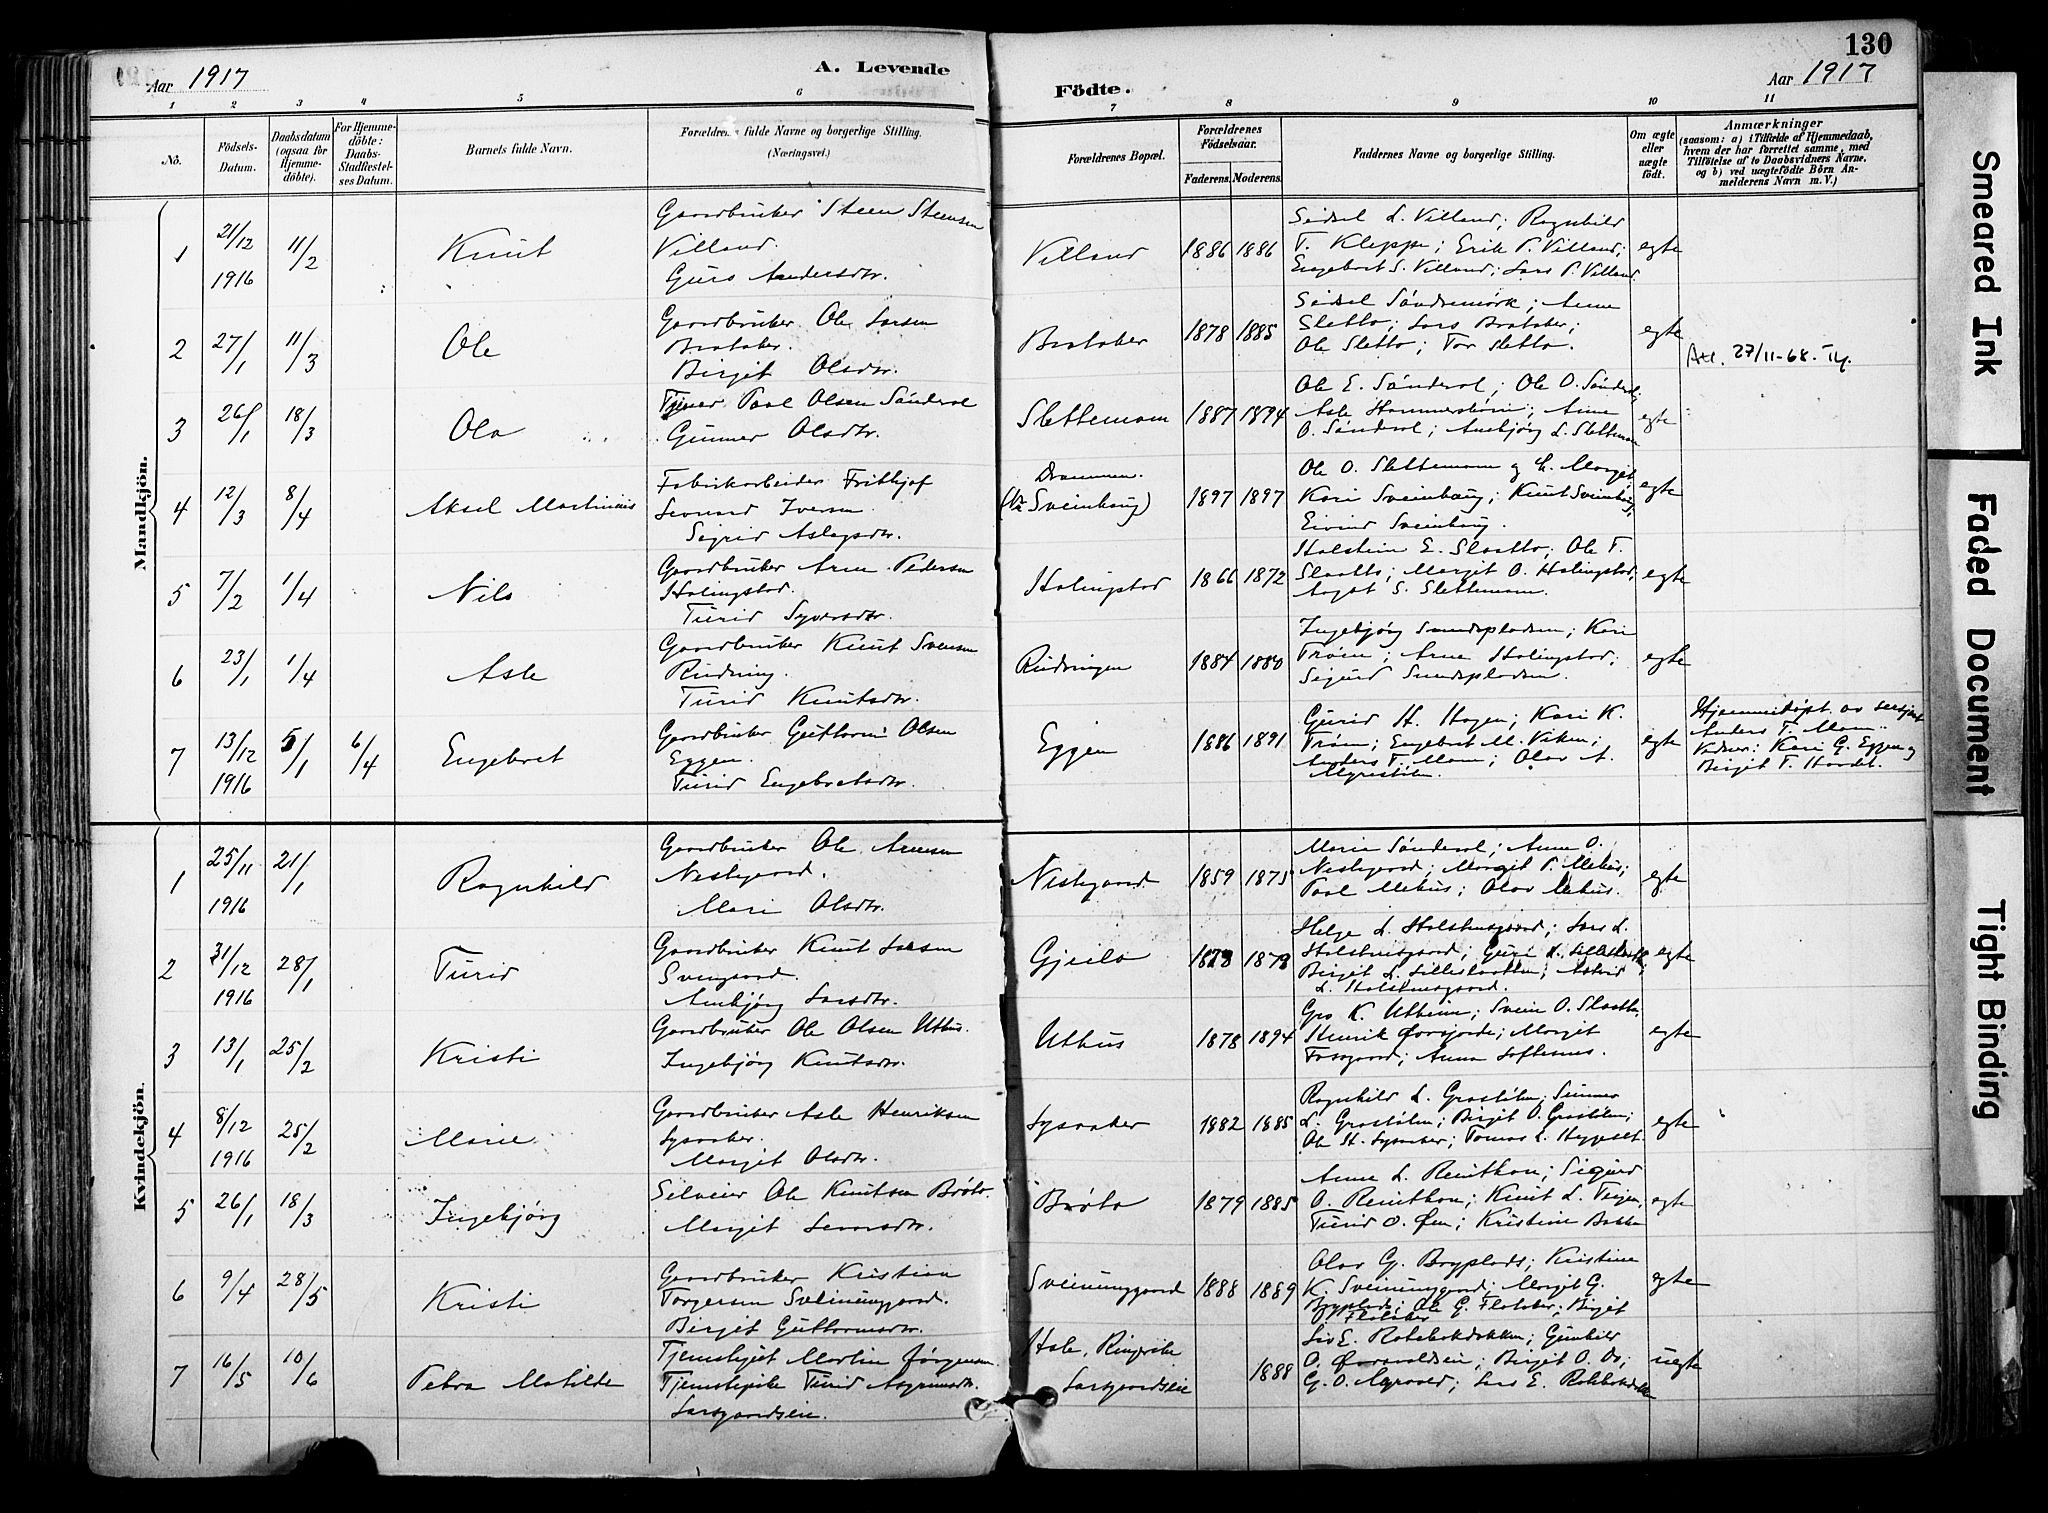 130
Aar 1917
A. Levende
Födte.
Aar 1917
1 2 3 4 5 6 7 8 9 10 11
No.
Födsels-
Datum.
Daabsdatum
(ogsaa för
Hjemme-
döbte).
For Hjemme-
döbte:
Daabs-
Stadfæstel-
ses Datum.
Barnets fulde Navn.
Forældrenes fulde Navne og borgerlige Stilling.
(Næringsvei.)
Forældrenes Bopæl.
Forældrenes
Födselsaar.
Faderens. Moderens.
Faddernes Navne og borgerlige Stilling.
Om ægte
eller
uægte
födt.
Anmærkninger
(saasom: a) i Tilfælde af Hjemmedaab,
hvem der har forrettet samme, med
Tilföielse af to Daabsvidners Navne,
og b) ved uægtefödte Börn An-
melderens Navn m. V.)
Mandkjön.
1 21/12 1916 11/2 Knut
Gaardbruker Steen Steensen
Villand.
Guro Andersdtr.
Villand 1886 1886
Sidsel L. Villand; Ragnhild
T. Kleppe; Erik P. Villand;
Engebret S. Villand; Lars P. Villand.
egte
2 27/1 11/3 Ole
Gaardbruker Ole Larsen
Brataker.
Birgit Olsdtr.
Brataker 1878 1885
Sidsel Söndremörk; Anne
Sletto; Lars Brataker;
Ole Sletto; Tor Sletto.
egte
Att. 27/11-68.
3 26/1 18/3 Ola
Tjener Paal Olsen Sönderal
Gunner Olsdtr.
Slettemoen 1887 1894
Ole E. Sönderal; Ole O. Sönderal;
Asle Hammersböen; Anne
O. Sönderal; Ambjörg L. Slettemoen
egte
4 12/3 8/4 Aksel Martinius
Fabrikarbeider Frithjof
Leonard Iversen.
Sigrid Aslegsdtr.
Drammen.
Sveinhaug) 1897 1897
Ole O. Slettemoen og h. Margit;
Kari Sveinhaug; Knut Sveinhaug;
Eivind Sveinhaug.
egte
5 7/2 1/4 Nils
Gaardbruker Arne Pedersen
Halingstad.
Turid Syversdtr.
Halingstad 1866 1872
Halstein E. Slaatto; Ole T.
Slaatto; Margit O. Halingstad;
Aagot S. Slettemoen.
egte
6 23/1 1/4 Asle
Gaardbruker Knut Svensen
Rudning.
Turid Knutsdtr.
Rudningen 1884 1880
Ingebjörg Sundspladsen; Kari
Tröim; Arne Halingstad;
Sigurd Sundspladsen.
egte
7 13/12 1916 5/1 6/4 Engebret
Gaardbruker Guttorm Olsen
Eggen.
Turid Engebretsdtr.
Eggen 1886 1891
Gurid H. Hagen; Kari K.
Tröim; Engebret M. Viken;
Anders T. Moen; Olav A.
Myrestölen.
egte
Hjemmedöpt av
Anders T. Moen.
Vidner: Kari G. Eggen og
Birgit T.
Kvindekjön.
1 25/11 1916 21/1 Ragnhild
Gaardbruker Ole Arnesen
Nestegaard.
Mari Olsdtr.
Nestegaard 1859 1875
Marie Sönderal; Anne O.
Nestegaard; Margit P. Mehus;
Paal Mehus; Olav Mehus.
egte
2 31/12 1916 28/1 Turid
Gaardbruker Knut Larsen
Svengaard.
Ambjörg Larsdtr.
Gjeilo 1878 1878
Helge L. Halstensgaard; Lars L.
Halstensgaard; Guri L. Lilleslaatten;
Birgit L. Lilleslaatten; Astrid
L. Halstensgaard.
egte
3 13/1 25/2 Kristi
Gaardbruker Ole Olsen Uthus.
Ingebjörg Knutsdtr.
Uthus 1878 1894
Gro K. Utheim; Svein O. Slaatto;
Henrik Övregjorde; Margit
Fossgaard; Anna Loftesnes.
egte
4 8/12 1916 25/2 Marie
Gaardbruker Asle Henriksen
Lysaaker.
Margit Olsdtr.
Lysaaker 1882 1885
Ragnhild L. Grostölen; Gunner
L. Grostölen; Birgit O. Grostölen;
Ole H. Lysaaker; Tomas L.
egte
5 26/1 18/3 Ingebjörg
Selveier Ole Knutsen Bröto.
Margit Larsdtr.
Bröto 1879 1885
Anne L. Reinton; Sigurd
O. Reinton; Knut L. Teigen;
Turid O. Öen; Kristine Bakke
egte
6 9/4 28/5 Kristi
Gaardbruker Kristian
Torgersen Sveinunggaard.
Birgit Guttormsdtr.
Sveinunggaard 1888 1889
Olav G. Bryplads; Kristine
K. Sveinunggaard; Margit G.
Bryplads; Ole G. Flataker; Birgit
Flataker
egte
7 16/5 10/6 Petra Matilde
Tjenestegut Martin Jörgensen.
Tjenestepike Turid Asgrimsdtr.
Larsgaardseie.
Hole, Ringerike
Larsgaardseie 1888
Liv E. Rotebakdokken; Gunhild
O.; Birgit O. Do;
G. O. Myrvold; Lars E. Rotebakdokken
uegte
Smeared Ink
Faded Document
Tight Binding